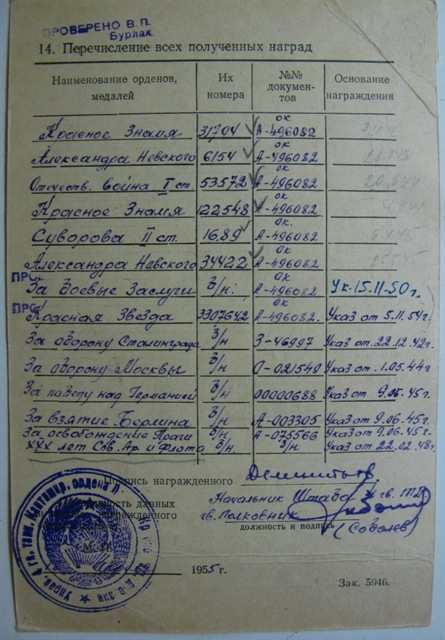 ПРОВЕРЕНО В. П.
Бурлак
14. Перечисление всех полученных наград
Наименование орденов, медалей | Их номера | №№ документов | Основание награждения
Красное Знамя 31704 ОК А-496082
Александра Невского 6154 ОК А-496082
Отечеств. война I ст. 53572 ОК А-496082
Красное Знамя 122548 ОК А-496082
Суворова II ст. 1689 ОК. А-496082
Александра Невского 34422 ОК А-496082
За Боевые Заслуги б/н. ОК А-496082 Ук. 15.11.50 г.
Красная Звезда 3307642 ОК А-496082. Указ от 5.11.54 г.
За оборону Сталинграда б/н З-46997 Указ от 22.12.42 г.
За оборону Москвы б/н О-021540 Указ от 1.05.44 г
За победу над Германией б/н 00000688 Указ от 9.05.45 г.
За взятие Берлина б/н А-003305 Указ от 9.06.45 г.
За освобождение Праги б/н А-075566 Указ от 9.06.45 г.
XXX лет Сов. Ар и Флота б/н Указ от 22.02.48 г.
Подпись награжденного
Начальник Штаба гв.
гв. Полковник
должность и подпись
(Соболев
1955 г.
Зак. 5946.